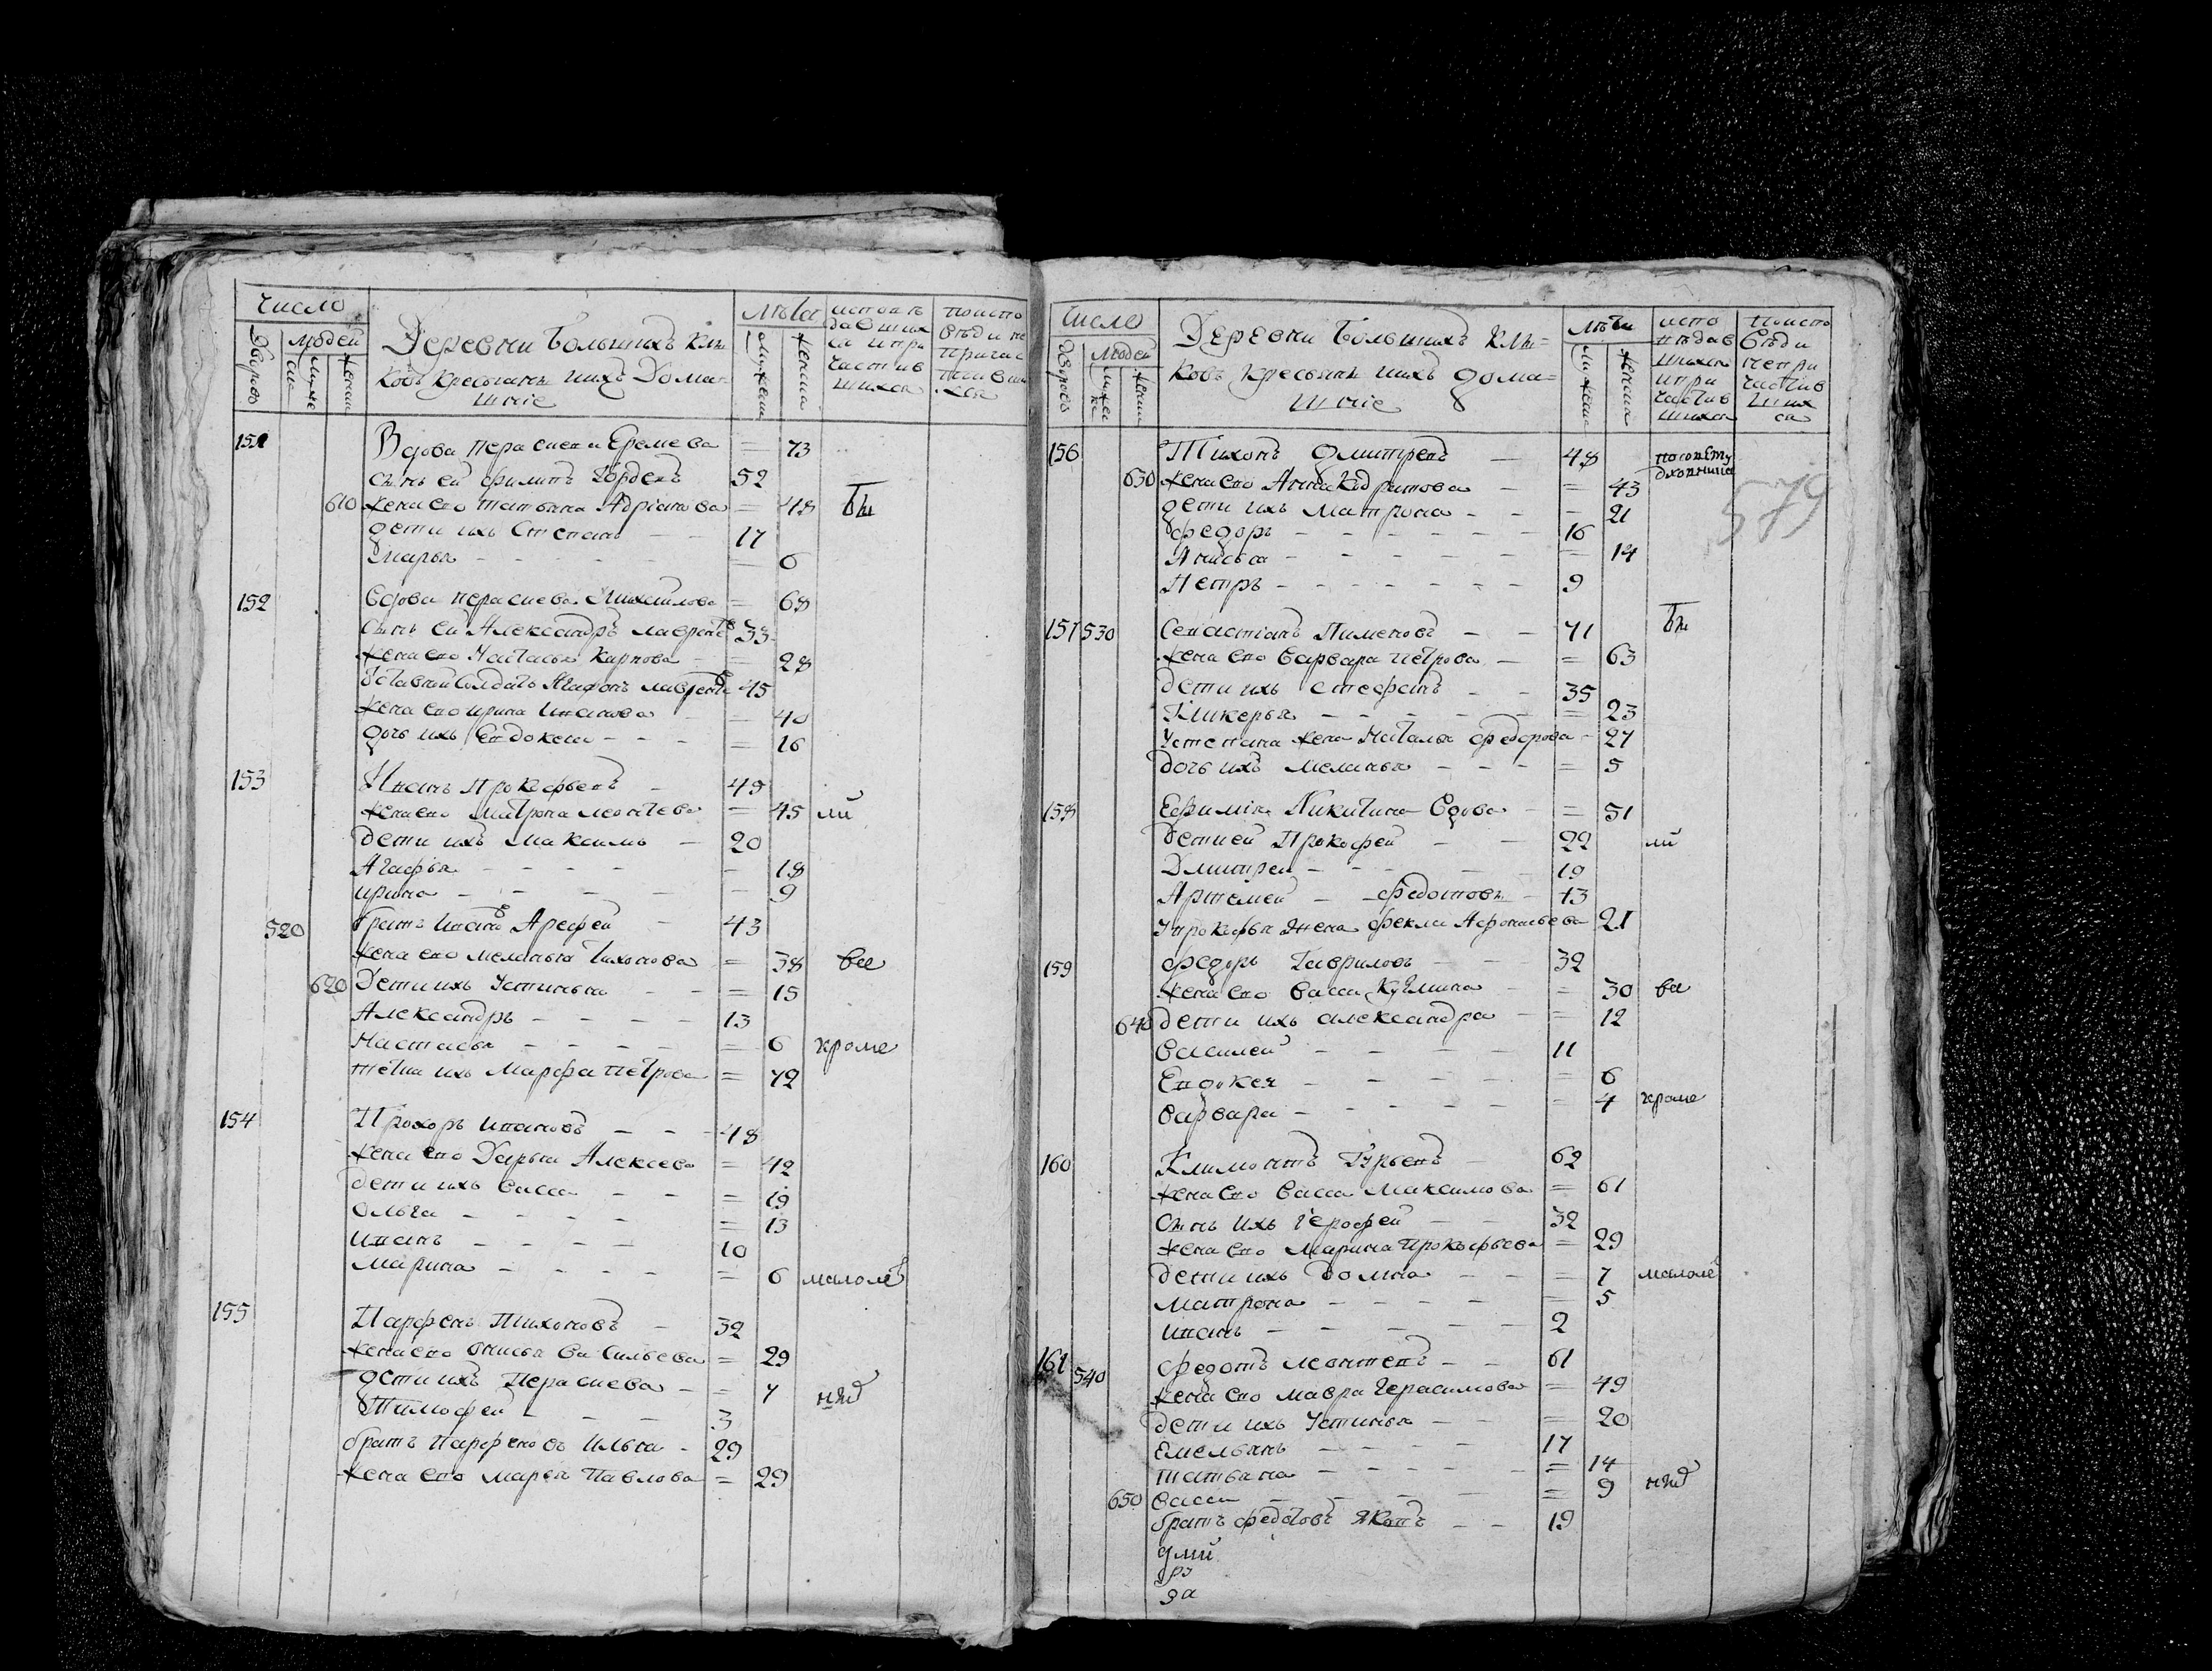 число
Дворовъ
людей
Деревни Большихъ Клю
ковъ крестьяне ихъ Дома=
шніе
Лѣта
исповѣ
давших
ся и при
частив
шихся
по испо
вѣди не
причас
тивши
хся
151 Вдова Парасневи Еремева = 73
сынъ ей Филипъ Гордевъ 52
610 жена ево Татьяна Адріанова = 48 бы
дети ихъ Степанъ - - 17
Марья - - - 6
152 Вдова Парасневa Михаилова = 68
сынъ ей Александръ Лаврентев 33
жена ево Настасья Карпова = 28
Уставной Солдатъ Агафонъ Лаврентев 45
жена ево Ирина Иванова = 40
дочь ихъ Евдокеи - - - = 16
153 Иванъ Прокофьевъ - 49
жена ево Матрона Леонтева = 45 ли
дети ихъ Максимъ - 20
Агафья - - - - 18
Ирина - - - - 9
520 братъ Ивановъ Арефей - 43
жена ево Меланья Тихонова = 38 все
620 Дети ихъ Устинья - - = 15
Александръ - - - - 13
Настасья - - - - = 6 кроме
тетка ихъ Марфа Петрова = 72
154 Прохоръ Ивановъ - - - 48
жена ево Дарья Алексева = 42
дети ихъ Васса - - = 19
Ольга - - - - = 13
Иванъ - - - - 10
Марина - - - - = 6 малолѣ
155 Парфенъ Тихоновъ - 32
жена ево Анисья Васильева = 29
дети ихъ Параснева - = 7
Тимофей - - - 3
братъ Парфеновъ Илья - 29
жена ево Марья Павлова = 29
число
дворовъ
людей
Деревни Большихъ Клю=
ковъ крестьяне ихъ дома=
шніе
лѣта
испо
вѣдав
шихся
и при
частив
шихся
по испо
вѣди
не при
частив
ших
ся
579
156 Тихонъ Дмитревъ - 48
630 жена ево Анна Кодратова - = 43
дети ихъ Матрона - - - 21
Федоръ - - - - - - 16
Анисья - - - - - = 14
Петръ - - - - - - 9
157 530 Севастіанъ Пименовъ - - 71 бы
жена ево Варвара Петрова - = 63
дети ихъ Стефанъ - - 35
Гликерья - - - - - = 23
У Степана жена Наталья Федорова - 27
дочь ихъ Меланья - - - = 5
158 Ефимія Никитина Вдова - = 51
Дети ей Прокофей - - 22 ли
Дмитрей - - - - - 19
Артемей - - Федотовы - 13
У Прокофья Жена Фекла Афонасьева 21
159 Федоръ Гавриловъ - - 32
жена ево Васса Кузмина - = 30 все
640 дети ихъ Александра - = 12
Василей - - - - 11
Евдокея - - - - = 6
Варвара - - - - - = 4 кроме
160 Климонтъ Гурьевъ - 62
жена ево Васса Максимова = 61
сынъ ихъ Герофей - - 32
жена ево Марина Прокофьева = 29
дети ихъ Домна - - = 7 малолѣ
Матрона - - - - = 5
Иванъ - - - - - 2
161 540 Федотъ Леонтевъ - - 61
жена ево Мавра Герасимова = 49
дети ихъ Устинья - - = 20
Емельянъ - - - - 17
Татьяна - - - - - = 14
650 Васса - - - - - = 9
братъ Федотовъ Яковъ - - 19